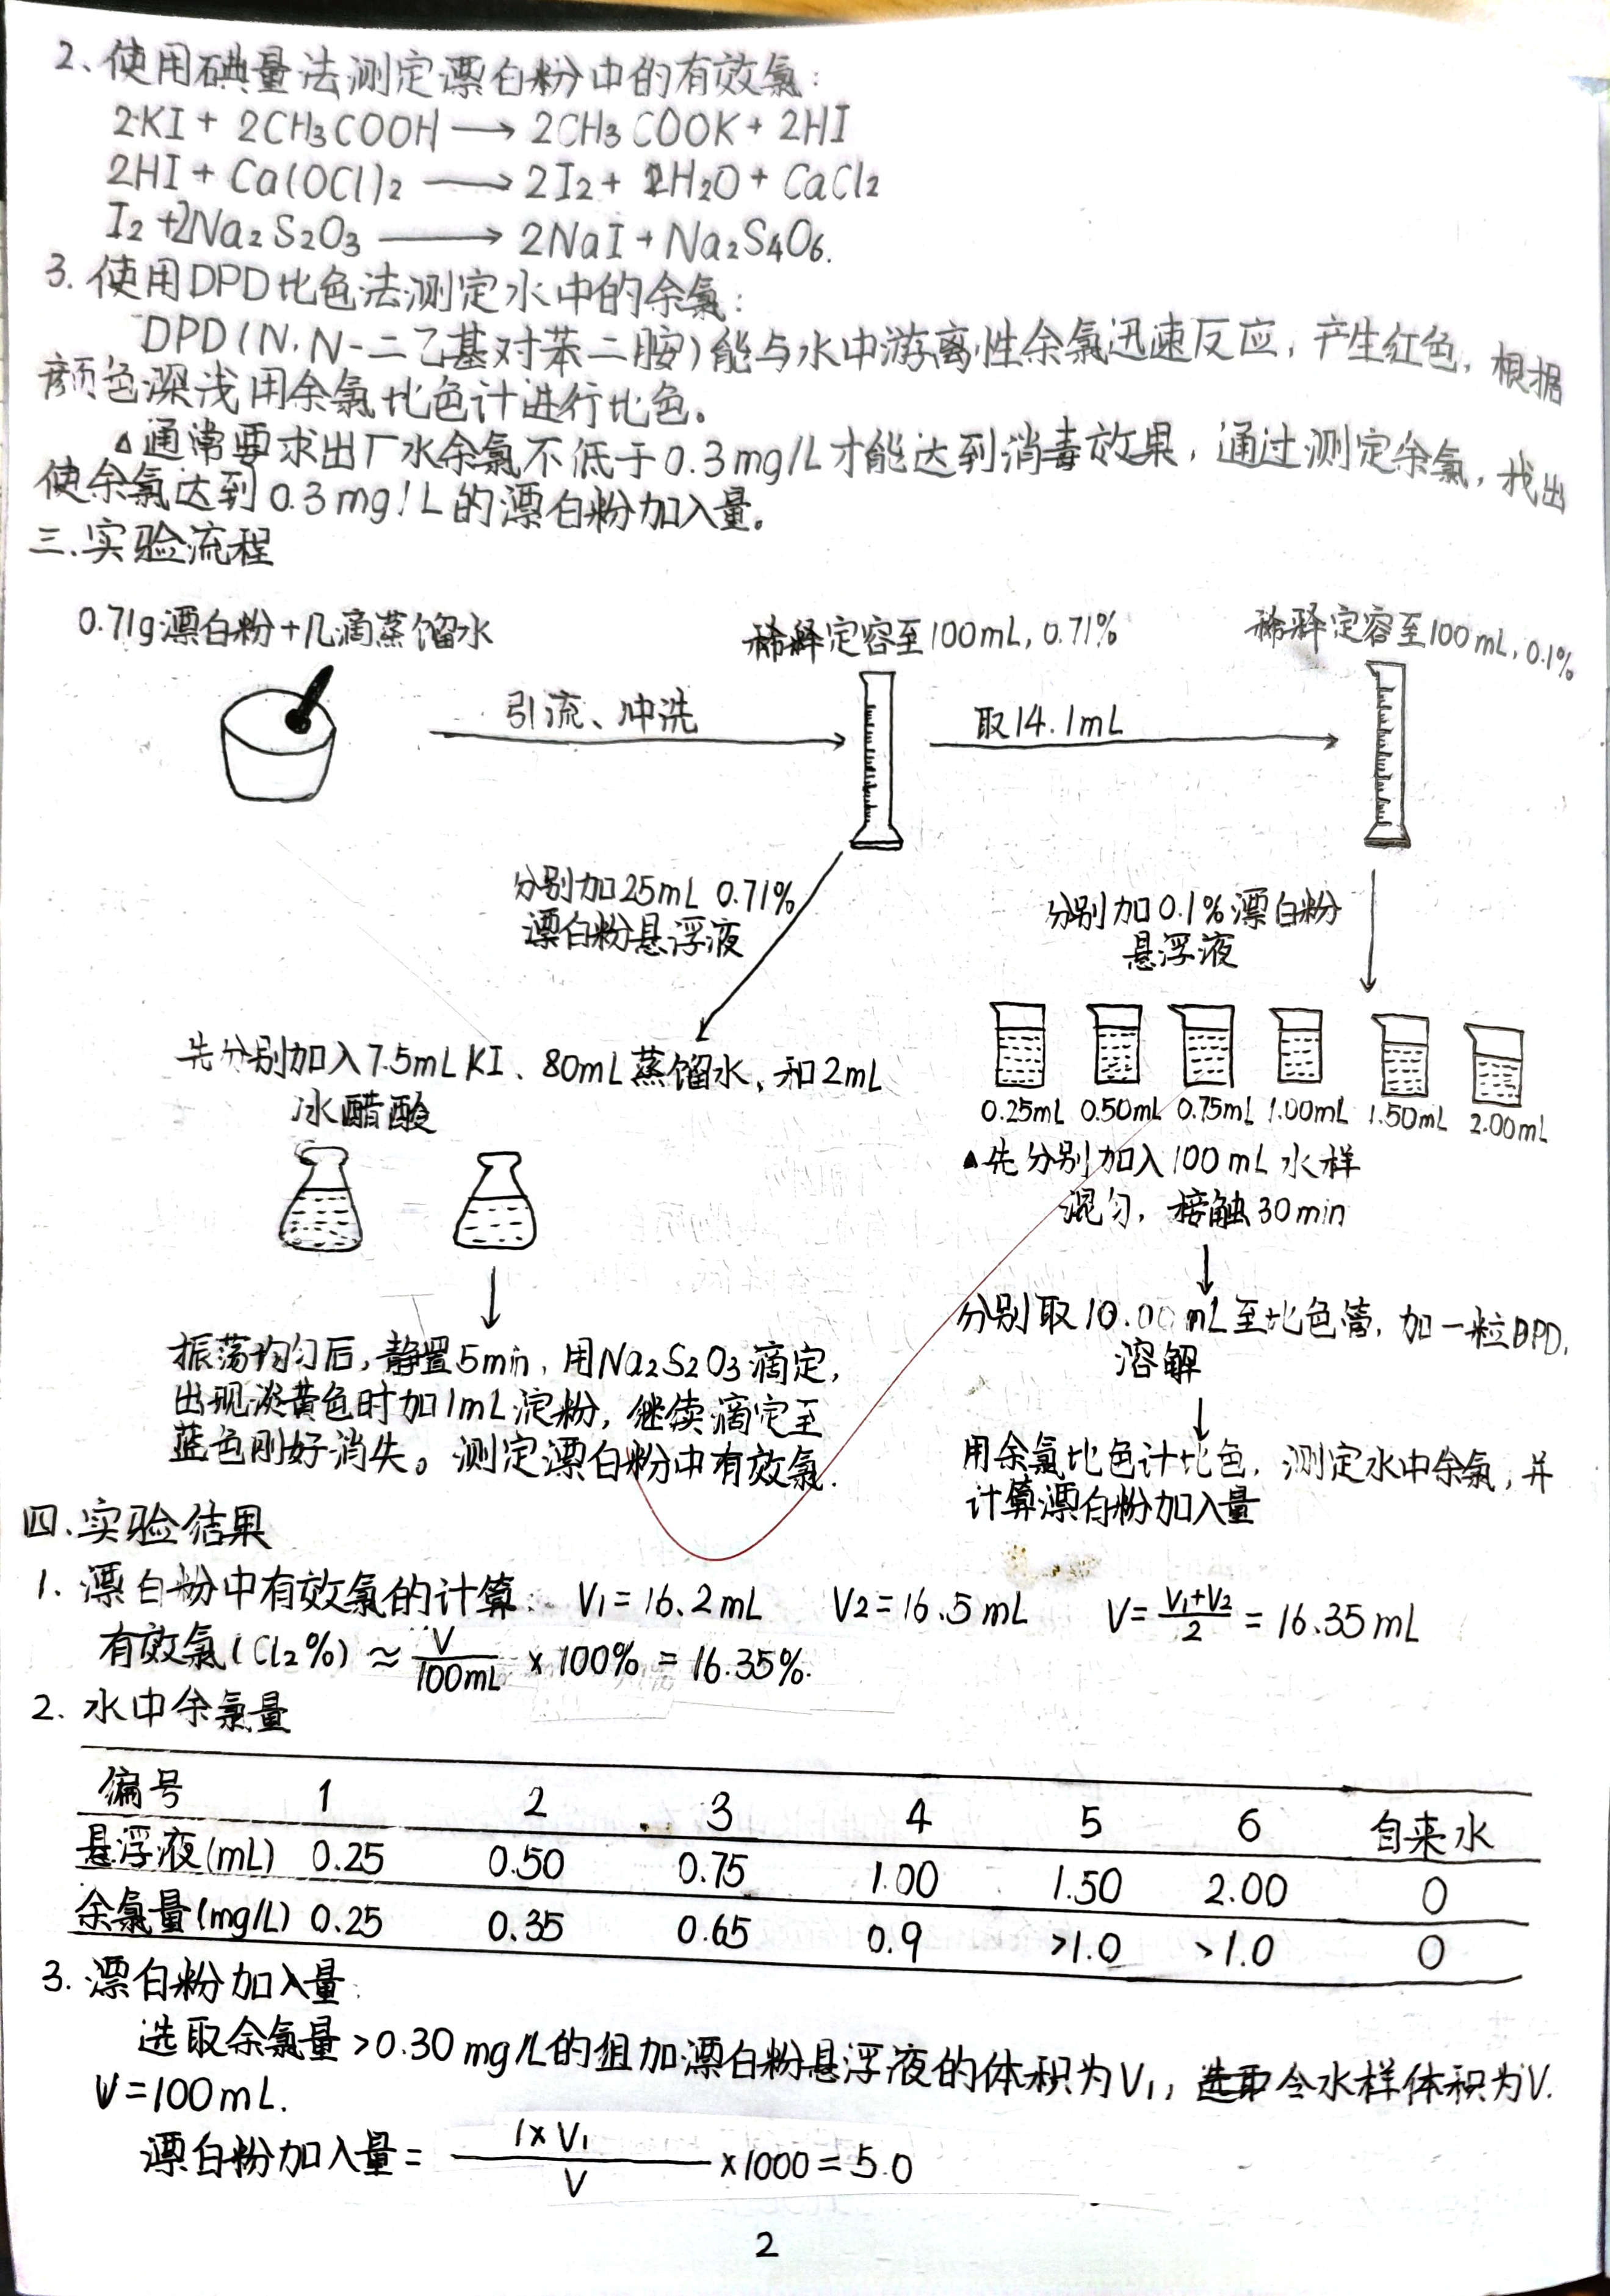 2、使用碘量法测定漂白粉中的有效氯：
2KI + 2CH3COOH → 2CH3COOK + 2HI
2HI + Ca(OCl)2 → 2I2 + 2H2O + CaCl2
I2 + 2Na2S2O3 → 2NaI + Na2S4O6.
3. 使用DPD比色法测定水中的余氯：
DPD(N,N-二乙基对苯二胺)能与水中游离性余氯迅速反应，产生红色，根据
颜色深浅用余氯比色计进行比色。
△通常要求出厂水余氯不低于0.3mg/L才能达到消毒效果，通过测定余氯，找出
使余氯达到0.3mg/L的漂白粉加入量。
三.实验流程
0.71g漂白粉+几滴蒸馏水
引流、冲洗
稀释定容至100mL, 0.71%
取14.1mL
稀释定容至100mL, 0.1%
分别加25mL 0.71%
漂白粉悬浮液
先分别加入7.5mL KI、80mL蒸馏水、和2mL
冰醋酸
振荡均匀后，静置5min，用Na2S2O3滴定，
出现淡黄色时加1mL淀粉，继续滴定至
蓝色刚好消失。测定漂白粉中有效氯.
分别加0.1%漂白粉
悬浮液
0.25mL 0.50mL 0.75mL 1.00mL 1.50mL 2.00mL
▲先分别加入100mL水样
混匀，接触30min
分别取10.00mL至比色管，加一粒DPD,
溶解
用余氯比色计比色，测定水中余氯，并
计算漂白粉加入量
四.实验结果
1. 漂白粉中有效氯的计算： V1=16.2mL V2=16.5mL V=(V1+V2)/2=16.35mL
有效氯(Cl2%) ≈ V/100mL × 100% = 16.35%.
2. 水中余氯量
编号 1 2 3 4 5 6 自来水
悬浮液(mL) 0.25 0.50 0.75 1.00 1.50 2.00 0
余氯量(mg/L) 0.25 0.35 0.65 0.9 >1.0 >1.0 0
3. 漂白粉加入量：
选取余氯量>0.30mg/L的组加漂白粉悬浮液的体积为V1，选取令水样体积为V.
V=100mL.
漂白粉加入量= (1×V1)/V ×1000=5.0
2